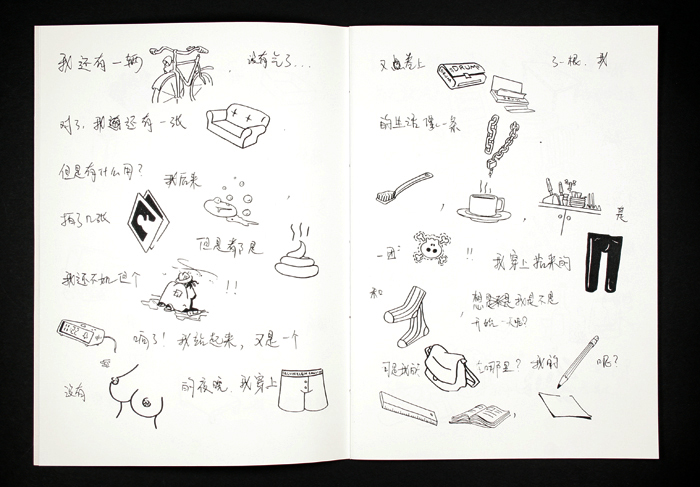 我还有一辆 ，没有气了…
对了，我还有一张 .
但是有什么用？ 我后来 ，
画了几张 但是都是
我还不如一个 ！！
响了！我站起来，又是一个
没有 的夜晚，我穿上
又卷上 DRUM 了一根，我
的生活像一条 .
， ， % 是
一团 ！！ 我穿上 的
和 ， 我是不是
开始一天
可是我的 在哪里？我的 呢？